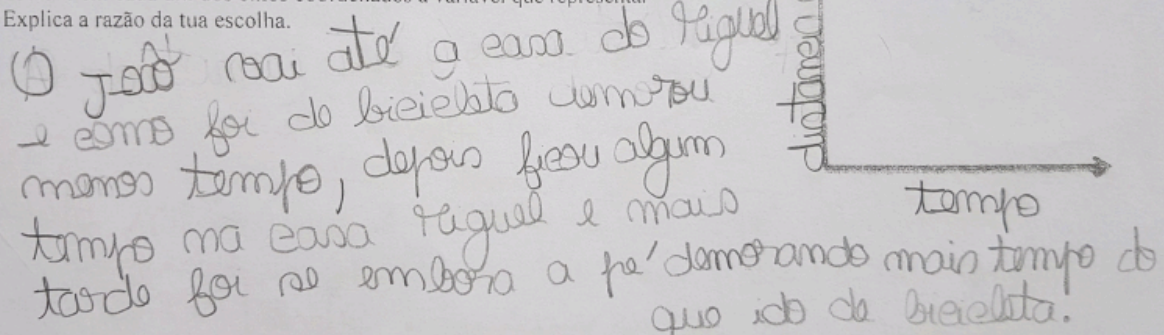 Explica a razão da tua escolha.
O João vai até a casa do Miguel
e como foi de bicicleta demorou
menos tempo, depois ficou algum
tempo na casa Miguel e mais
tarde foi se embora a pé demorando mais tempo do
que ido de bicicleta.
distância
tempo